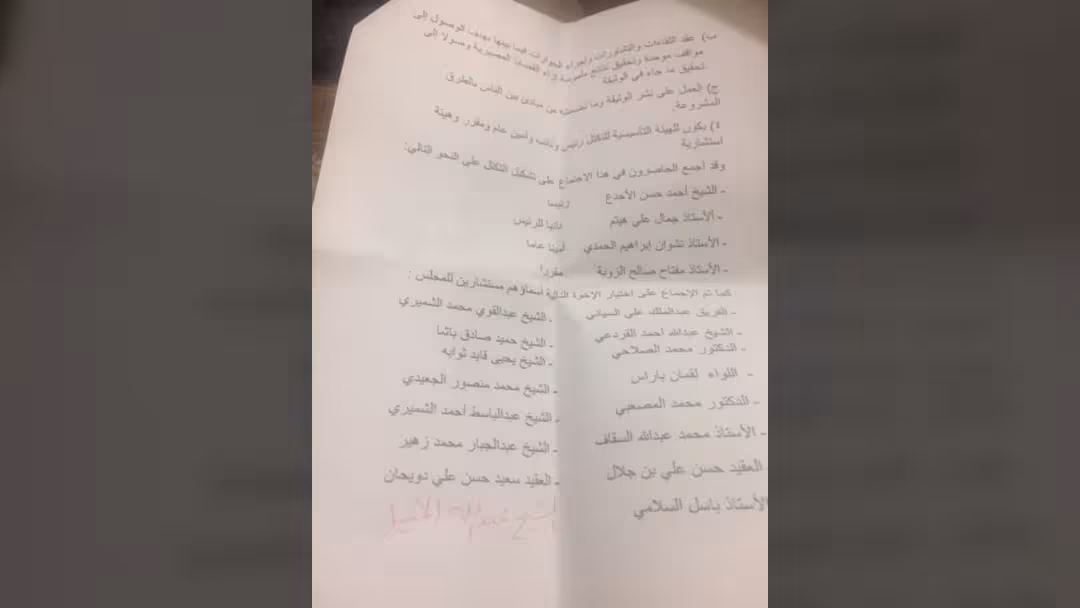 ب) عقد اللقاءات والتشاورات وإجراء الحوارات فيما بينها بهدف الوصول إلى
مواقف موحدة وتحقيق نتائج ملموسة إزاء القضايا المصيرية وصولا إلى
تحقيق ما جاء في الوثيقة
ج) العمل على نشر الوثيقة وما تضمنته من مبادئ بين الناس بالطرق
المشروعة.
٤) يكون للهيئة التأسيسية للتكتل رئيس ونائب وأمين عام ومقرر وهيئة
استشارية
وقد أجمع الحاضرون في هذا الاجتماع على تشكيل التكتل على النحو التالي:
- الشيخ أحمد حسن الأجدع رئيسا
- الأستاذ جمال علي هيثم نائبا للرئيس
- الأستاذ نشوان إبراهيم الحمدي أمينا عاما
- الأستاذ مفتاح صالح الزوبة مقررا
كما تم الإجماع على اختيار الإخوة التالية أسماؤهم مستشارين للمجلس :
- الفريق عبدالملك علي السياني - الشيخ عبدالقوي محمد الشميري
- الشيخ عبدالله أحمد القردعي - الشيخ حميد صادق باشا
- الدكتور محمد الصلاحي - الشيخ يحيى قايد ثوابه
- اللواء لقمان باراس - الشيخ محمد منصور الجعيدي
- الدكتور محمد المصعبي - الشيخ عبدالباسط أحمد الشميري
- الأستاذ محمد عبدالله السقاف - الشيخ عبدالجبار محمد زهير
- العقيد حسن علي بن جلال - العقيد سعيد حسن علي دويحان
الأستاذ باسل السلامي الشيخ عبدالله